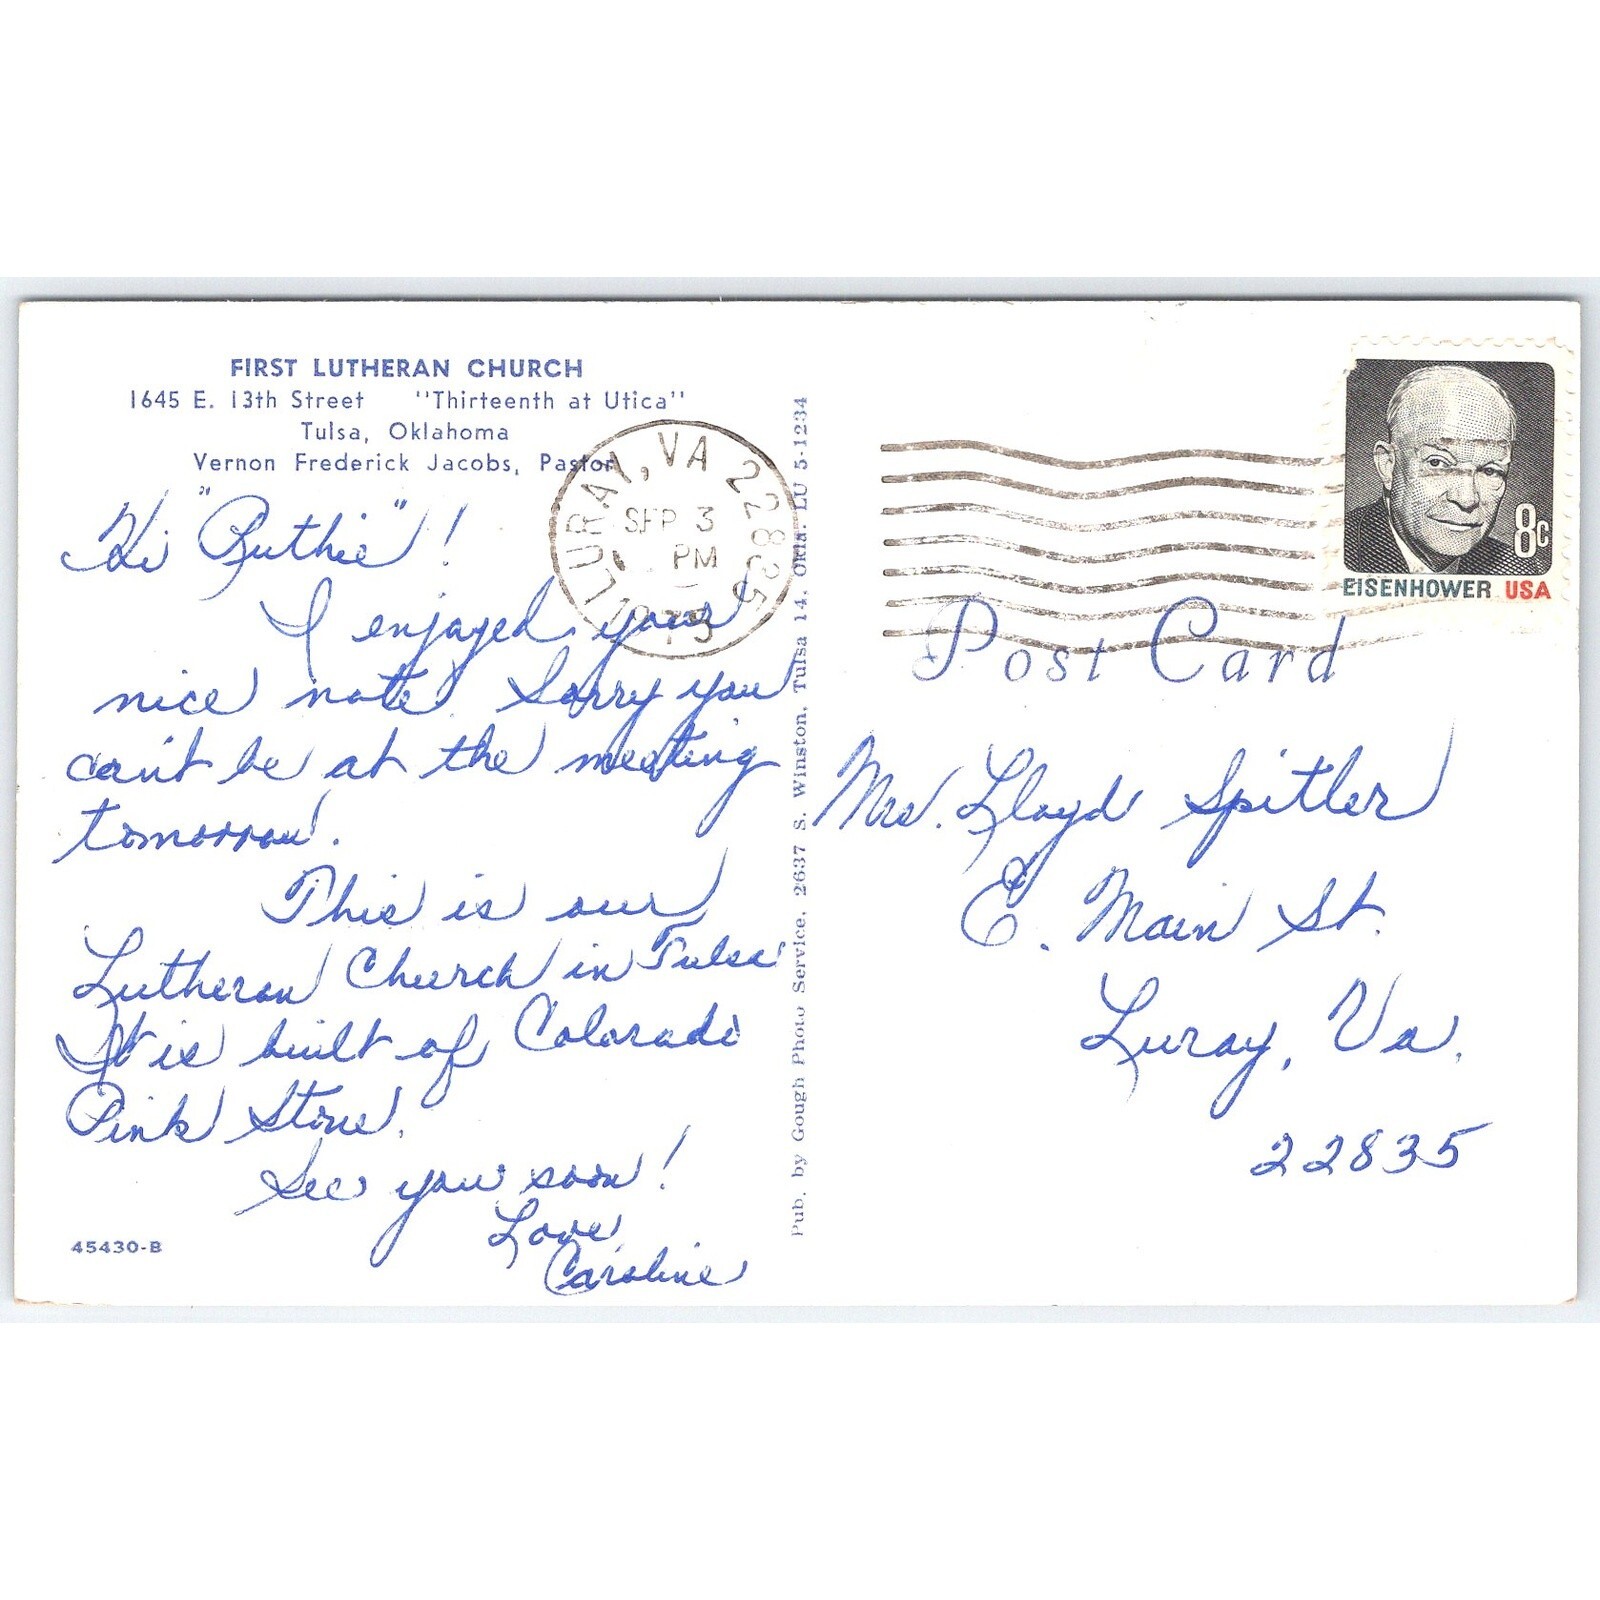 FIRST LUTHERAN CHURCH
1645 E. 13th Street "Thirteenth at Utica"
Tulsa, Oklahoma
Vernon Frederick Jacobs, Pastor
Hi "Ruthie"!
I enjoyed your
nice note. Sorry you
can't be at the meeting
tomorrow.
This is our
Lutheran Church in Tulsa
It is built of Colorado
Pink Stone.
See you soon!
Love,
Caroline
45430-B
Pub. by Gough Photo Service, 2637 S. Winston, Tulsa 14, Okla. LU 5-1234
LURAY, VA 22835
SEP 3
PM
1973
8c
EISENHOWER USA
Post Card
Mrs. Lloyd Spitler
E. Main St.
Luray, Va.
22835